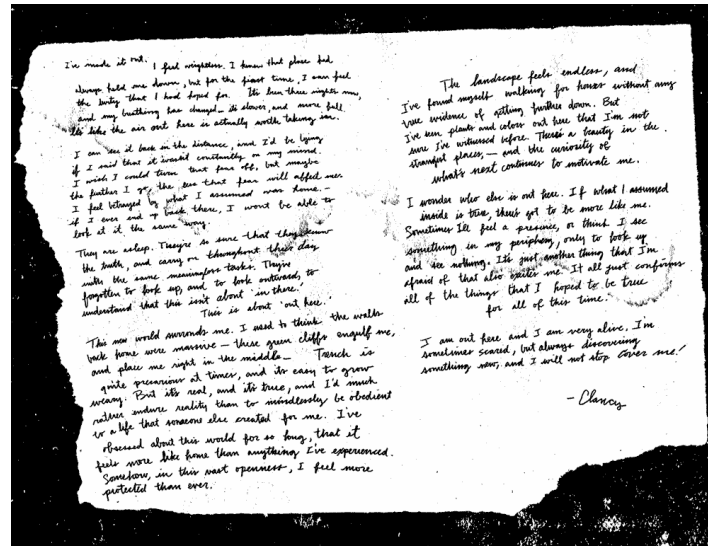 I've made it out. I feel weightless. I knew that place had
always held me down, but for the first time, I can feel
the unity that I had hoped for. It's been three nights now,
and my breathing has changed – its slower, and more full.
It's like the air out here is actually worth taking in.
I can see it back in the distance, and I'd be lying
if I said that it wasn't constantly on my mind.
I wish I could turn that fear off, but maybe
the further I go, the less that fear will affect me.
I feel betrayed by what I assumed was home –
if I ever end up back there, I won't be able to
look at it the same way.
They are asleep. They're so sure that they know
the truth, and carry on throughout their day
with the same meaningless tasks. They're
forgotten to look up, and to look outward, to
understand that this isn't about 'in there.'
This is about 'out here.'
This new world surrounds me. I used to think the walls
back home were massive – these green cliffs engulf me,
and place me right in the middle – Trench is
quite precarious at times, and its easy to grow
weary. But it's real, and it's true, and I'd much
rather endure reality than to mindlessly be obedient
to a life that someone else created for me. I've
obsessed about this world for so long, that it
feels more like home than anything I've experienced.
Somehow, in this vast openness, I feel more
protected than ever.
The landscape feels endless, and
I've found myself walking for hours without any
true evidence of getting further down. But
I've seen plants and colors out here that I'm not
sure I've witnessed before. There's a beauty in the
strangest places, – and the curiosity of
what's next continues to motivate me.
I wonder who else is out here. If what I assumed
inside is true, there's got to be more like me.
Sometimes I'll feel a presence, or think I see
something in my periphery, only to look up
and see nothing. It's just another thing that I'm
afraid of that also excites me. It all just confirms
all of the things that I hoped to be true
for all of this time.
I am out here and I am very alive. I'm
sometimes scared, but always discovering
something new, and I will not stop. Cover me!
– Clancy